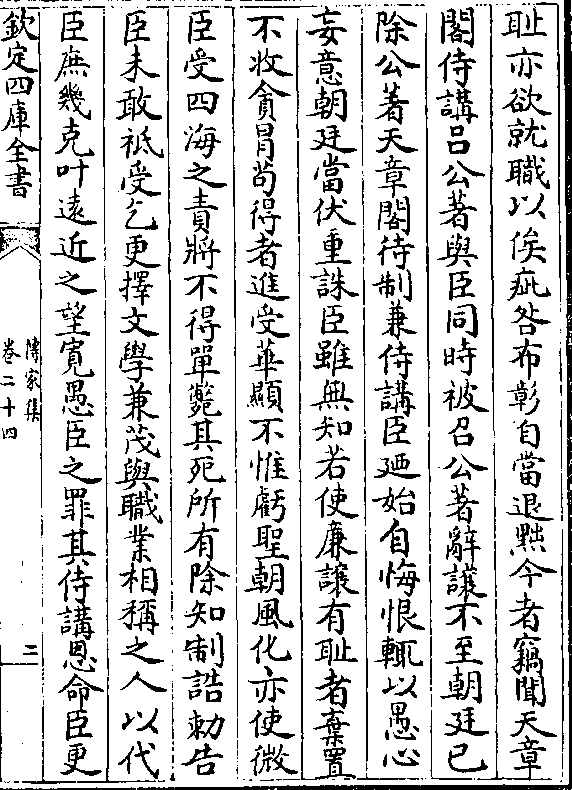 耻亦欲就職以俟疵咎布彰自當退黜今者竊聞天章
閣侍講吕公著與臣同時被召公著辭讓不至朝廷已
除公著天章閣待制兼侍講臣廼始自悔恨輒以愚心
妄意朝廷當伏重誅臣雖無知若使廉讓有耻者棄置
不收貪冒苟得者進受華顯不惟虧聖朝風化亦使微
臣受四海之責將不得單斃其死所有除知制誥勅告
臣未敢祗受乞更擇文學兼茂與職業相稱之人以代
臣庶幾克叶遠近之望寛愚臣之罪其侍講恩命臣更
欽定四庫全書
傳家集
卷二十四
二